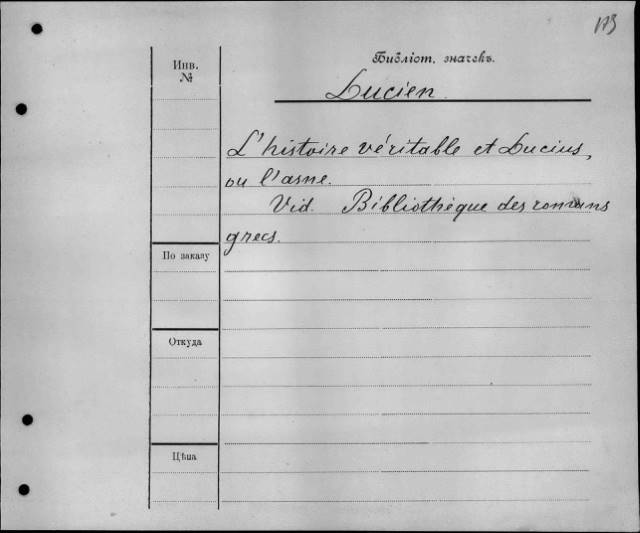 173
Инв.
№
Библіот. значекъ.
Lucien
L'histoire véritable et Lucius,
ou l'asne.
Vid. Bibliothèque des romans
grecs.
По заказу
Откуда
Цѣна